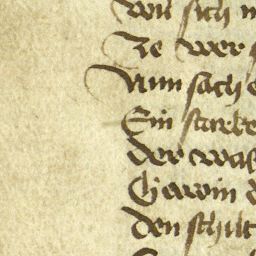 von sich
Ze wer
Nun sach
Ein starke
der was
Gawin
den schilt